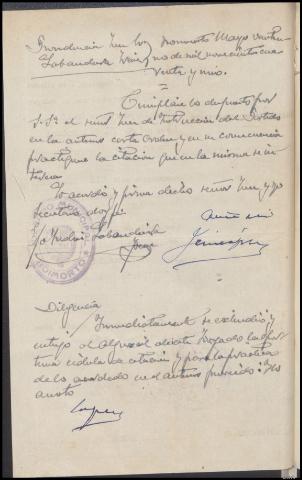 Providencia Juez Sr. Boimorto Mayo veintiu-
Labandeira Iñás no de mil novecientos cua-
renta y uno.
Cúmplase lo dispuesto por
S.Sª el señor Juez de Instrucción del Partido
en la anterior carta orden y en su consecuencia
practíquese la citación que en la misma se in-
teresa.
Lo acordó y firma dicho señor Juez y yo
Secretario doy fe.
Labandeira
Ante mi
BOIMORTO
Diligencia
Inmediatamente se extendió y
entregó al Alguacil de este Juzgado la opor-
tuna cédula de citación y para la práctica
de lo acordado en el anterior proveído: Doy fe